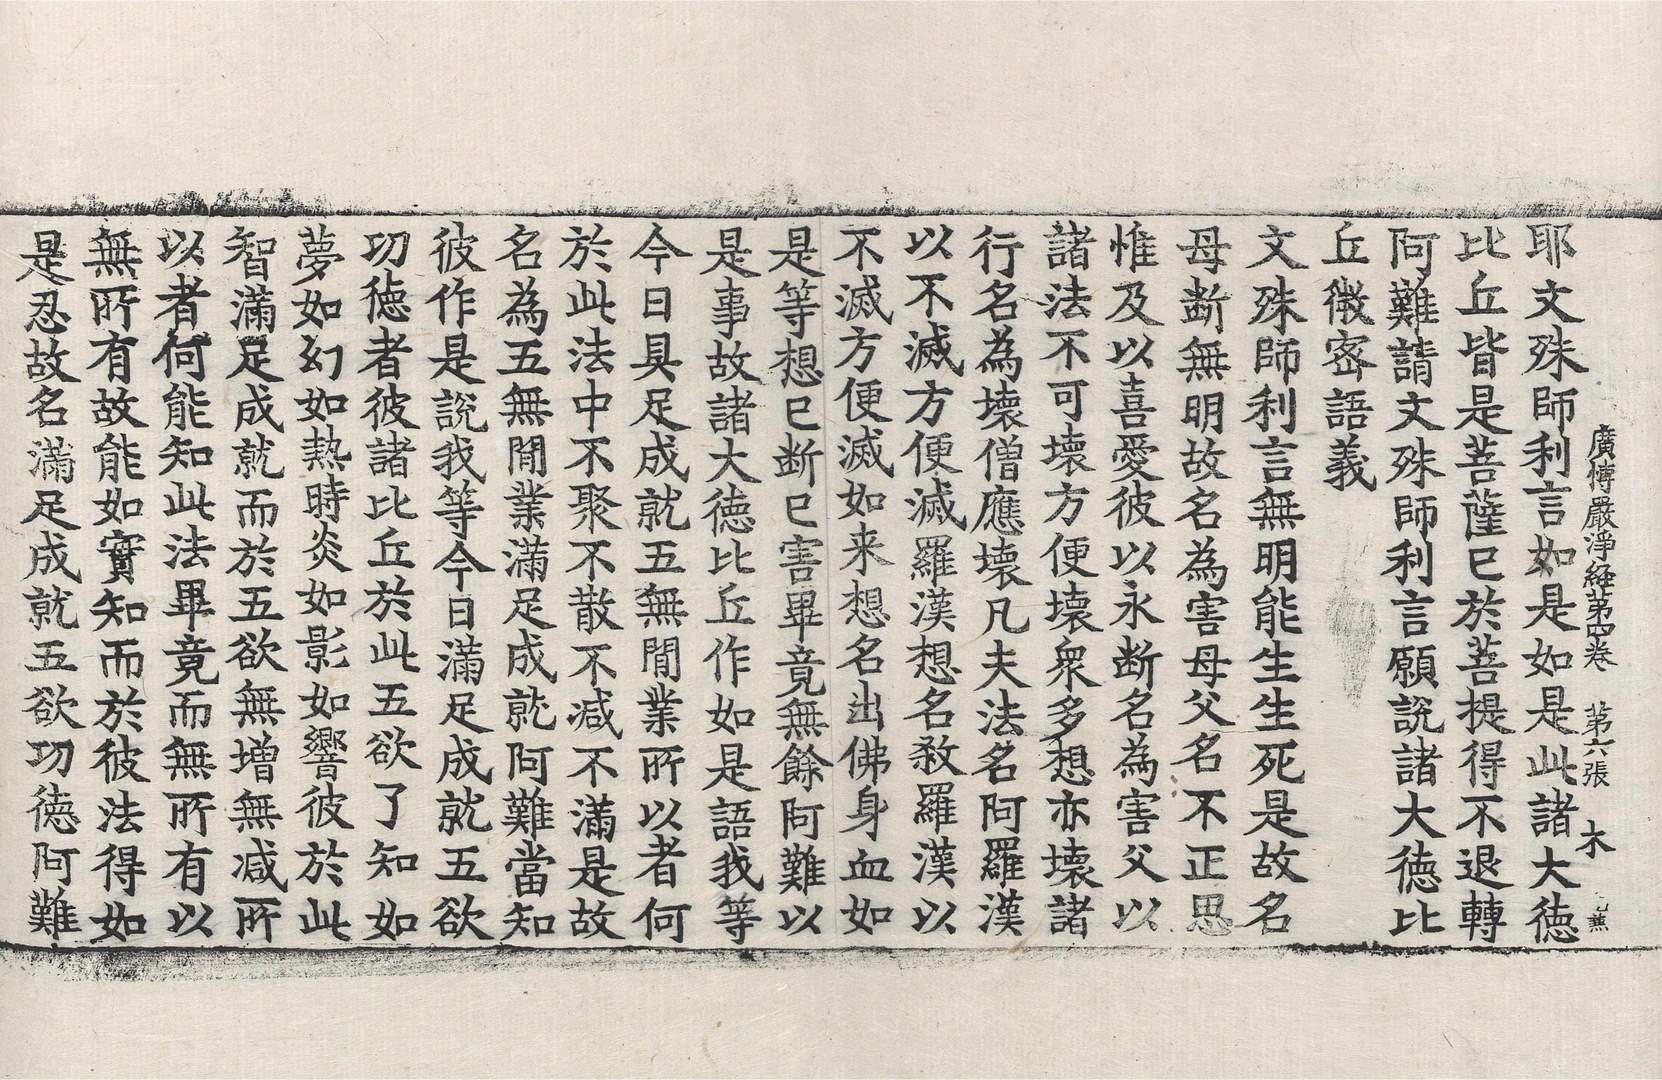 廣博嚴淨経苐四卷　苐六張　木
耶文殊師利言如是如是此諸大德
比丘皆是菩薩已於菩提得不退轉
阿難請文殊師利言願說諸大德比
丘微密語義
文殊師利言無明能生生死是故名
母断無明故名為害母父名不正思
惟及以喜愛彼以永断名為害父以
諸法不可壞方便壞衆多想亦壞諸
行名為壞僧應壞凡夫法名阿羅漢
以不滅方便滅羅漢想名殺羅漢以
不滅方便滅如来想名出佛身血如
是等想已断已害畢竟無餘阿難以
是事故諸大德比丘作如是語我等
今日具足成就五無間業所以者何
於此法中不聚不散不减不滿是故
名為五無間業滿足成就阿難當知
彼作是說我等今日滿足成就五欲
功德者彼諸比丘於此五欲了知如
夢如幻如熱時炎如影如響彼於此
智滿足成就而於五欲無增無减所
以者何能知此法畢竟而無所有以
無所有故能如實知而於彼法得如
是忍故名滿足成就五欲功德阿難